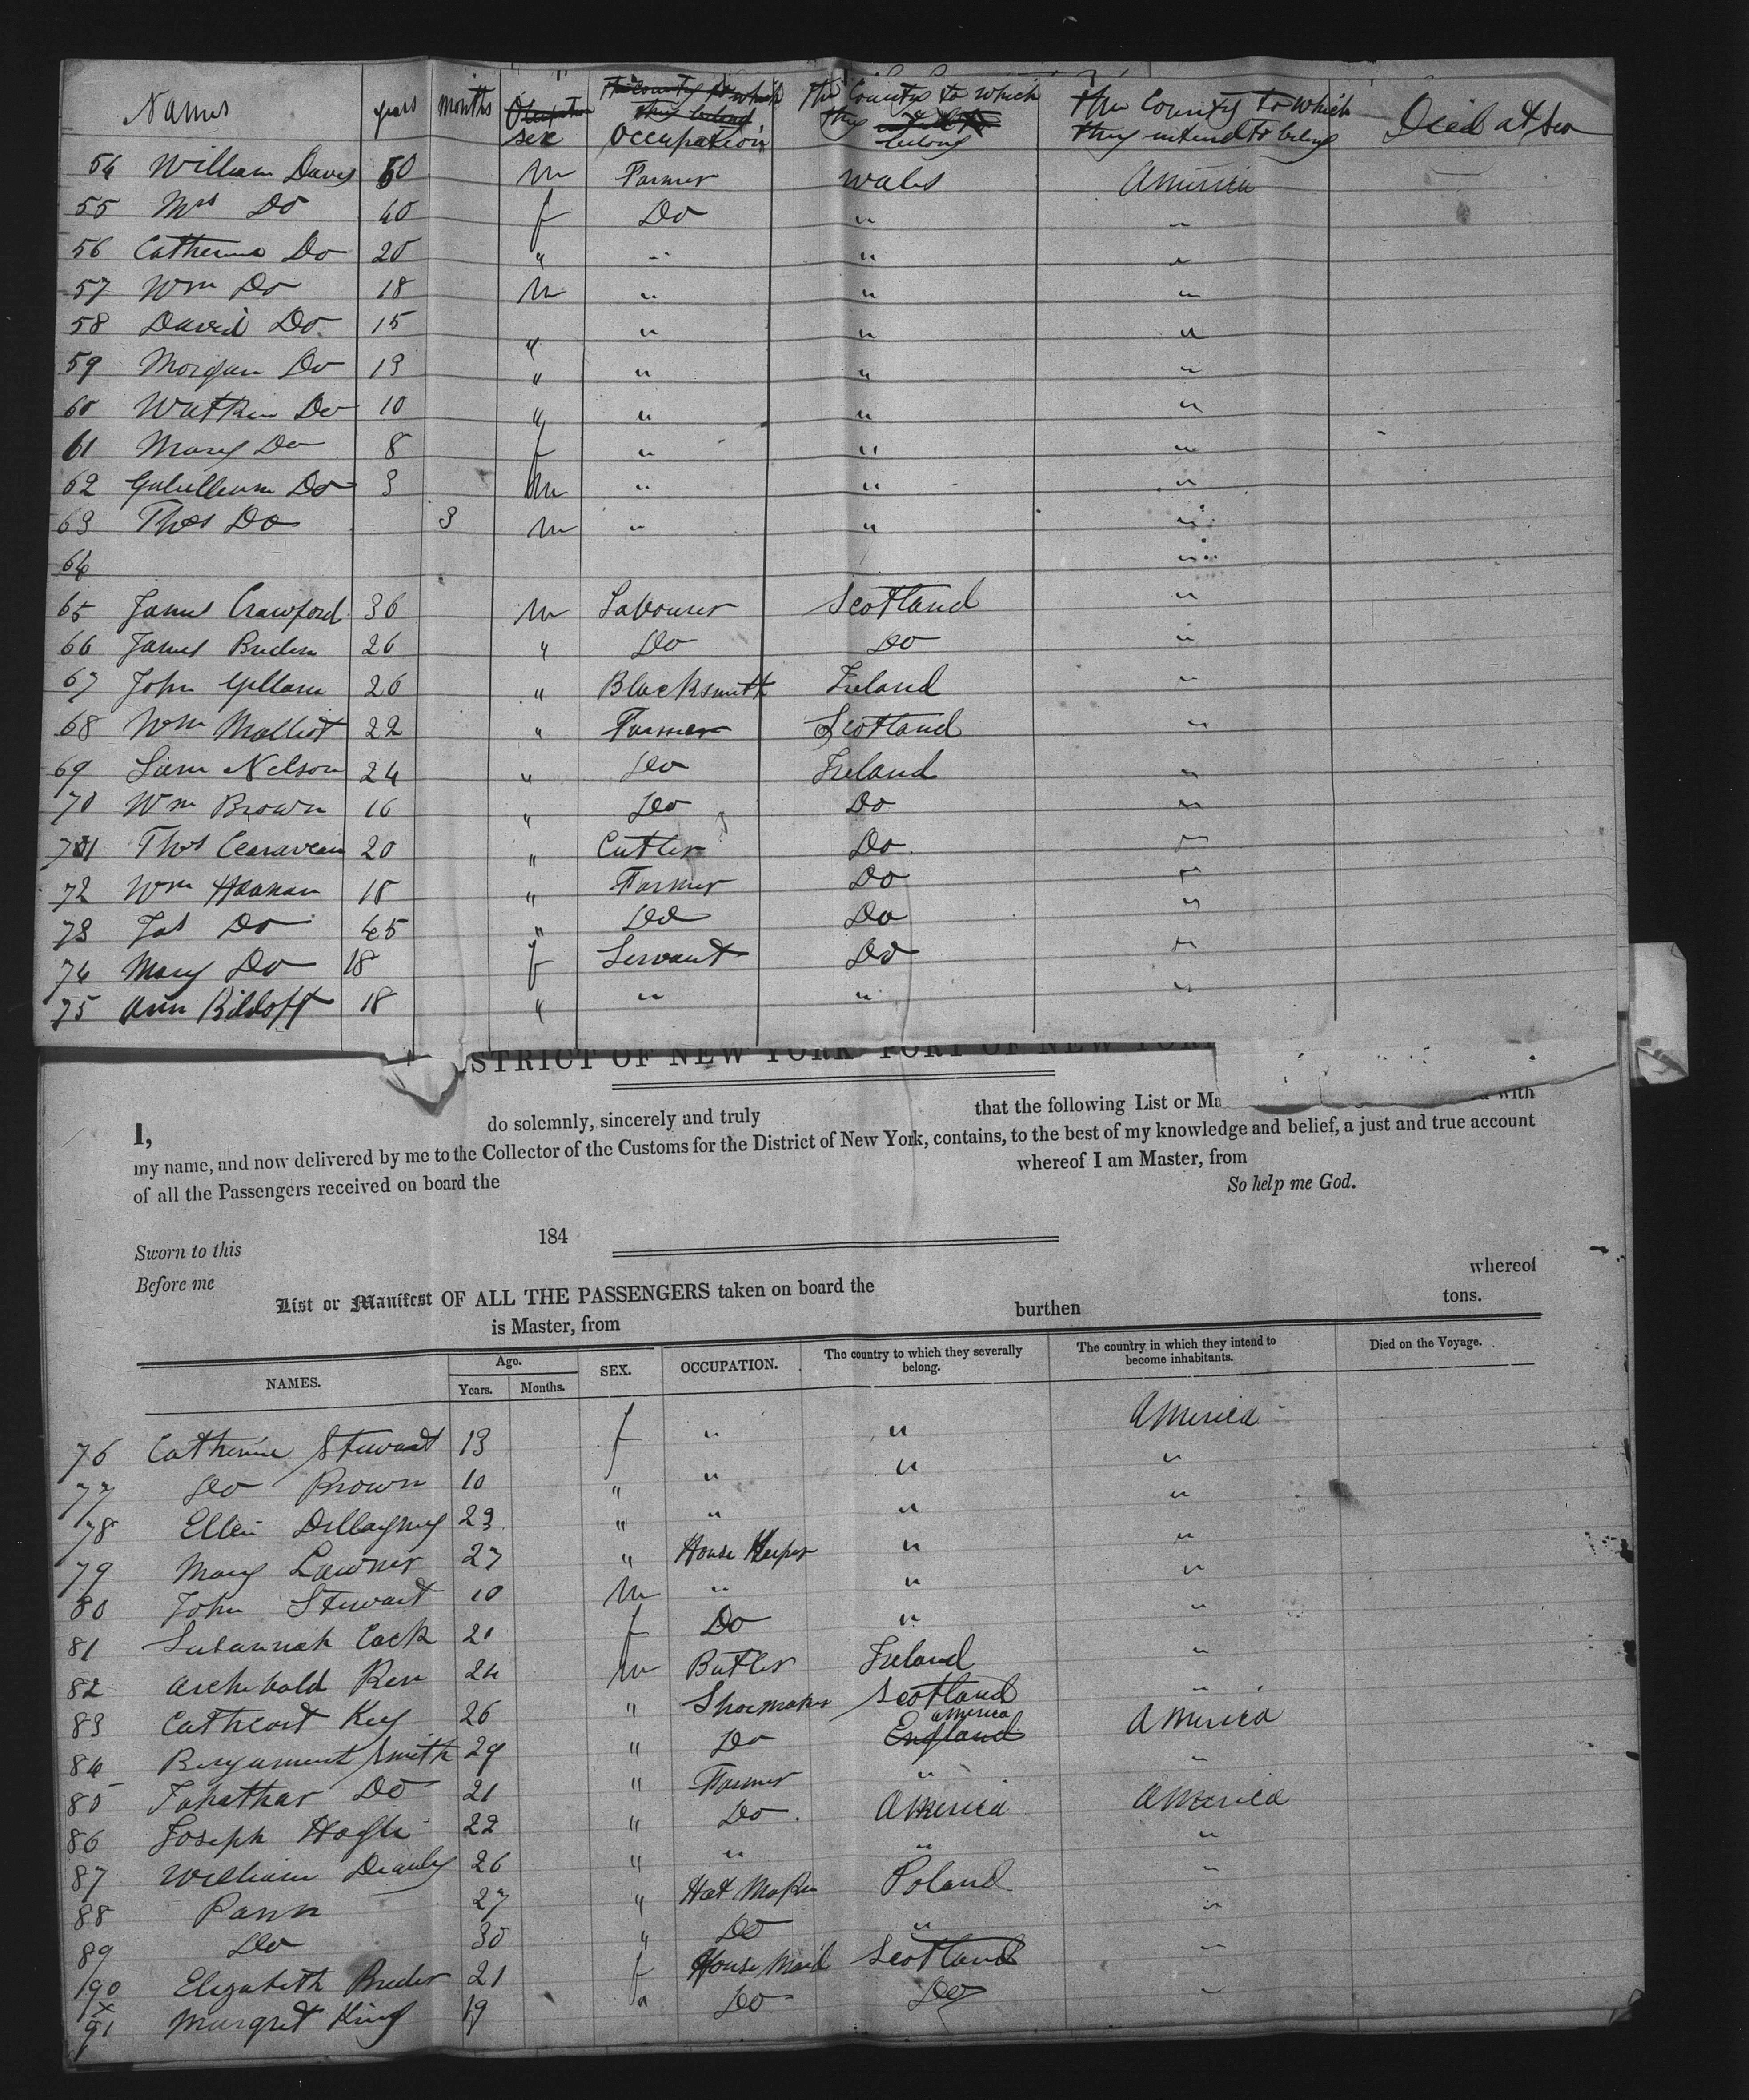 Names years months Occupation sex The County to which they belong Occupation The County to which they belong The County to which they intend to belong Died at Sea
54 William Daves 50 m Farmer Wales America
55 Mrs Do 40 f Do " "
56 Catherine Do 20 " " " "
57 Wm Do 18 m " " "
58 David Do 15 " " " "
59 Morgan Do 13 " " " "
60 Watkin Do 10 " " " "
61 Mary Do 8 f " " "
62 Do 3 m " " "
63 Thos Do 3 m " " "
64 "
65 James Crawford 36 m Labourer Scotland "
66 James 26 " Do Do "
67 John Gillam 26 " Blacksmith Ireland "
68 Wm Malliot 22 " Farmer Scotland "
69 Nelson 24 " Do Ireland "
70 Wm Brown 16 " Do Do "
71 Thos 20 " Cutler Do "
72 Wm 18 " Farmer Do "
73 Jas Do 45 " Do Do "
74 Mary Do 18 f Servant Do "
75 Ann 18 " " " "
STRICT OF NEW YORK PORT OF NEW YORK
I, do solemnly, sincerely and truly that the following List or Ma with
my name, and now delivered by me to the Collector of the Customs for the District of New York, contains, to the best of my knowledge and belief, a just and true account
of all the Passengers received on board the whereof I am Master, from
So help me God.
Sworn to this 184
Before me
List or Manifest OF ALL THE PASSENGERS taken on board the whereof
is Master, from burthen tons.
NAMES. Age. Years. Months. SEX. OCCUPATION. The country to which they severally belong. The country in which they intend to become inhabitants. Died on the Voyage.
76 Catherine Stewart 13 f " " America
77 Do Brown 10 " " " "
78 Ellen 23 " " " "
79 Mary 27 " House Keeper " "
80 John Stewart 10 m " " "
81 Susannah Cack 21 f Do " "
82 Archibald 24 m Butler Ireland "
83 Cathcart Key 26 " Shoemaker Scotland "
84 Smith 29 " Do England America America
85 Do 21 " Farmer " "
86 Joseph 22 " Do America America
87 William 26 " " " "
88 27 " Hat Maker Poland "
89 Do 30 " Do " "
90 Elizabeth 21 f House Maid Scotland "
x
91 Margret King 19 " Do Do "